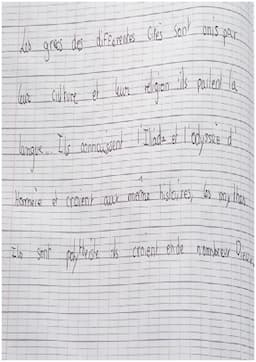 Les grecs des différentes cités sont unis par
leur culture et leur religion ils parlent la
langue... Ils connaissent l'Iliade et l'odyssée d'
Homère et croient aux même histoires, les mythes
Ils sont polythéiste ils croient en de nombreux Dieux